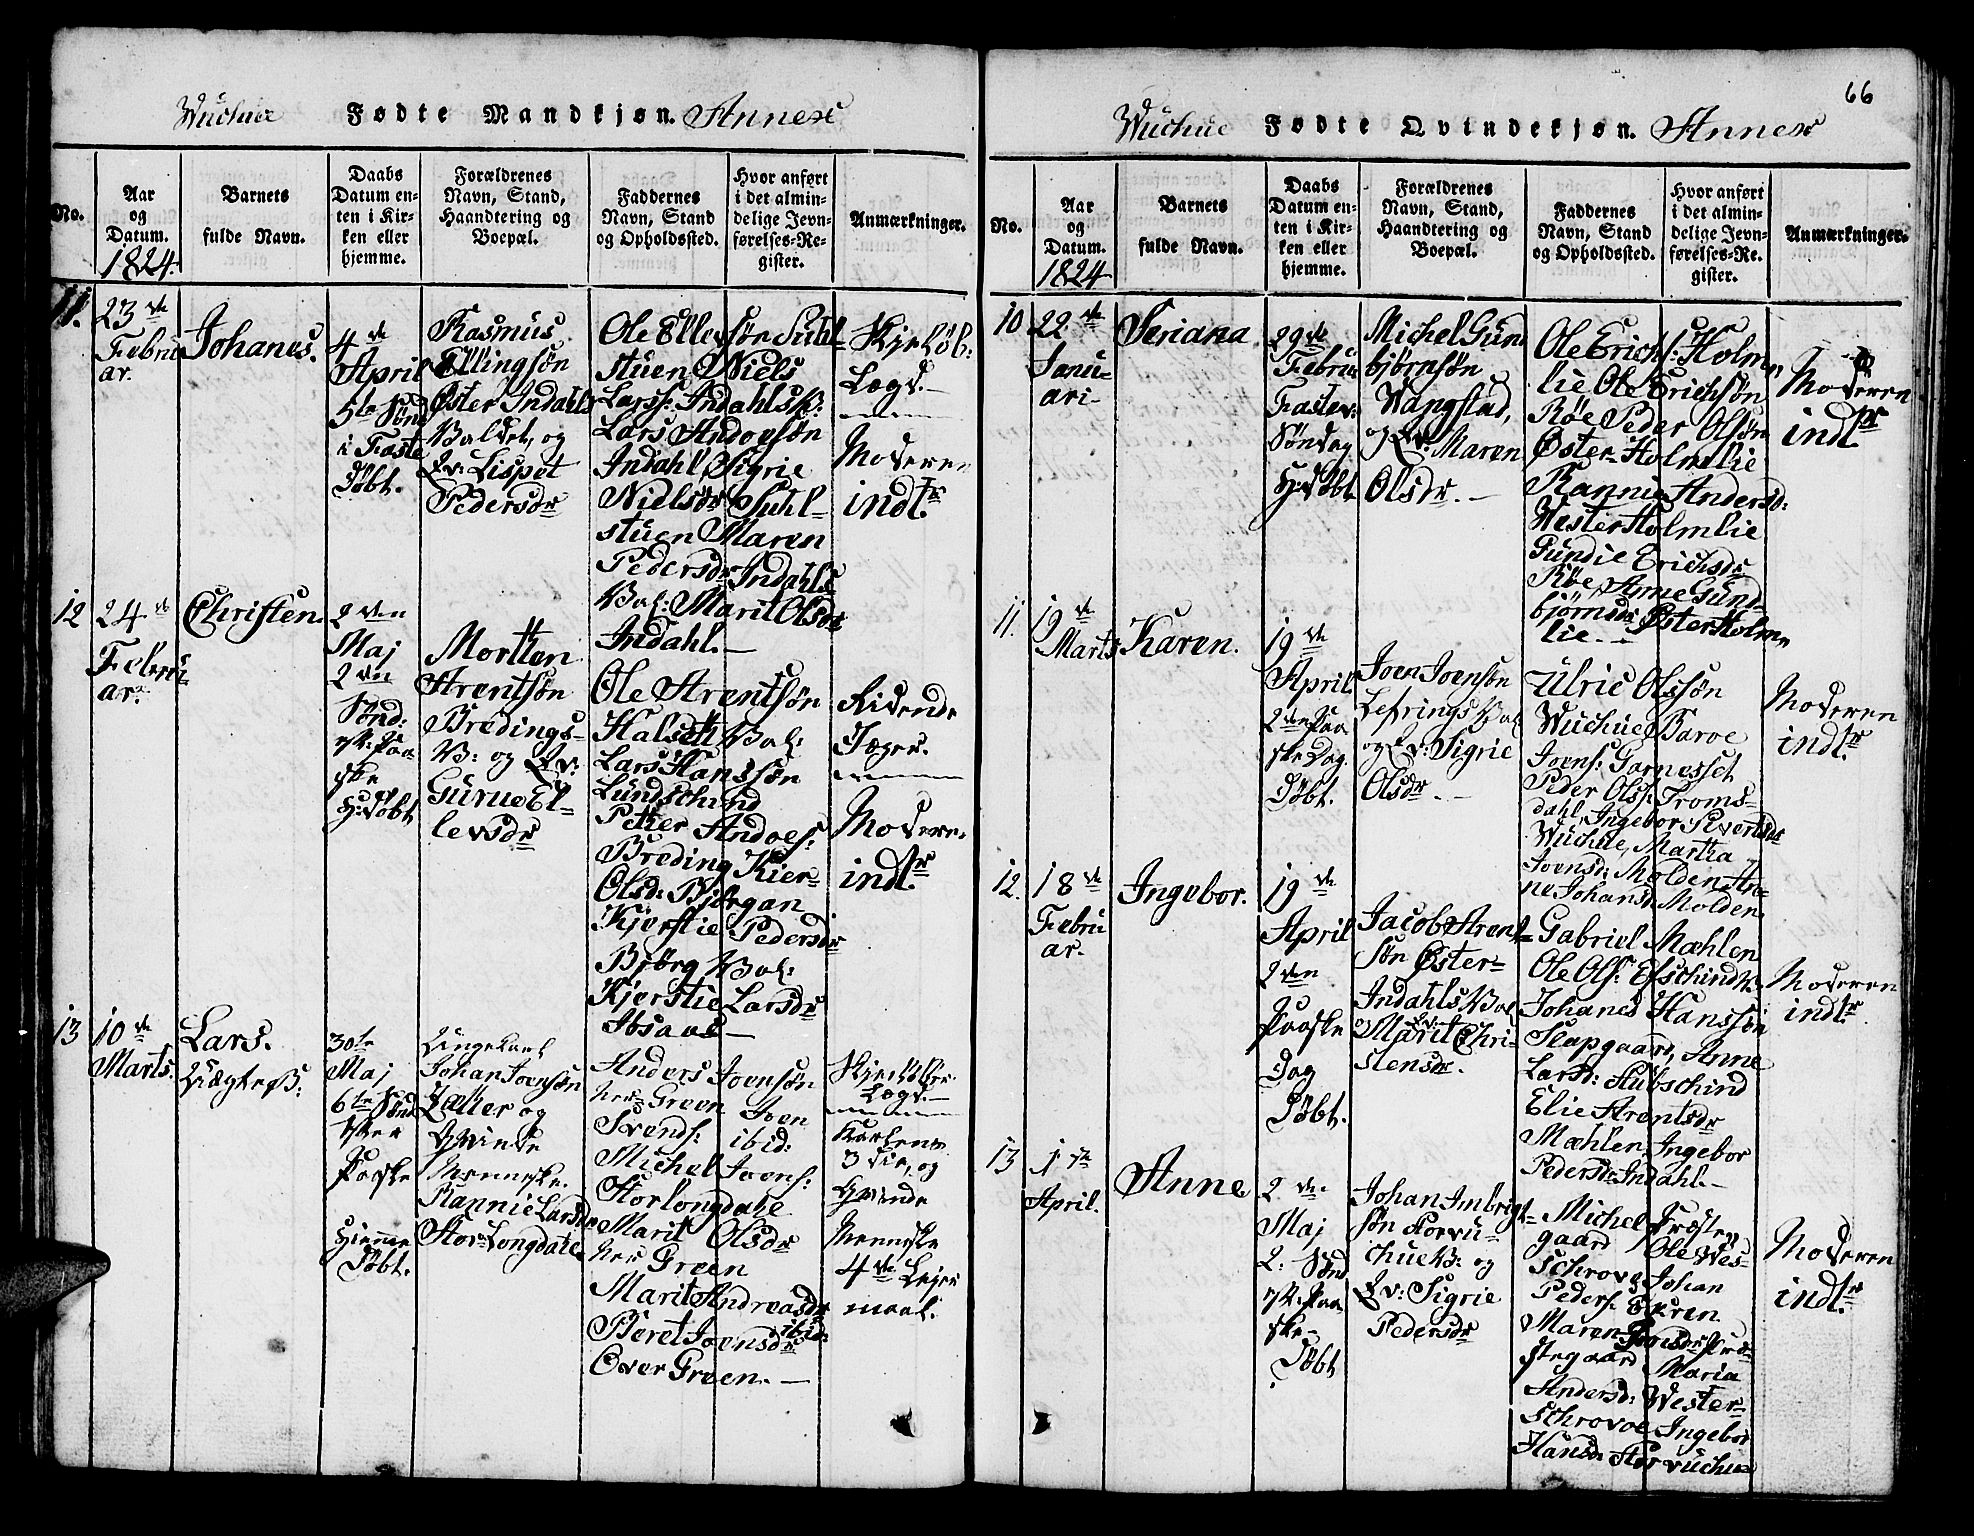 Wuchue Fødte Mandkjøn. Annex
No.
Aar
og
Datum.
1824.
Barnets
fulde Navn.
Daabs
Datum en-
ten i Kir-
ken eller
hjemme.
Forældrenes
Navn, Stand,
Haandtering og
Boepæl.
Faddernes
Navn, Stand
og Opholdssted.
Hvor anført
i det almin-
delige Jevn-
førelses-Re-
gister.
Anmærkninger.
11.
23de
Febru
ar.
Johanes.
4de
April
5te Sønd
i Faste
Døbt.
Rasmus
Ellingsøn
Øster Indahls
Valdet, og
Qv: Lispet
Pedersdr
Ole Ellevsøn Suhl-
stuen Niels
Larss: Indahlsv:
Lars Andoesøn
Indahl Sigrie
Nielsdr Suhl-
stuen Maren
Pedersdr Indahls
Val: Marit Olsdr
Indahl.
Skjeløb:
Lægd.
Moderen
indt.
12
24de
Febru
ar.
Christen.
2den
Maj
2den
Sønd:
efter Paa-
ske
H: Døbt
Mortten
Arentsøn
Bredings-
V: og Qv:
Gurue El-
levsdr
Ole Arentsøn
Halsett Val:
Lars Hanssøn
Lundschind
Petter Andoes:
Breding Kier-
Olsd: Bjørgan
Kjerstie Pedersdr
Bjørg Val:
Kjerstie Larsdr
Ibsaas
Ridende
Jæger.
Moderen
indt.
13
10de
Marts.
Lars.
Uægte B:
30te
Maj
6te Sønd
efter
Paaske
Hjemme
Døbt.
Ungekarl
Johan Joensøn
Zakker og
Qvinde
Menneske.
Rannie Larsdr
Stor Longdale
Anders Joensøn
her Green Joen
Svends: ibid:
Michel Joens:
Storlongdale
Marit Olsdr
her Green
Marit Andreasdr
ibid:
Beret Joensdr
Over Green.
Skjeløber
Lægd.
Karlens
3die, og
Qvinde
Menneske
4de Lejer
maal.
66
Wuchue Fødte Qvindekjøn. Annex
No.
Aar
og
Datum.
1824
Barnets
fulde Navn.
Daabs
Datum en-
ten i Kir-
ken eller
hjemme.
Forældrenes
Navn, Stand,
Haandtering og
Boepæl.
Faddernes
Navn, Stand
og Opholdssted.
Hvor anført
i det almin-
delige Jevn-
førelses-Re-
gister.
Anmærkninger.
10
22de
Janu-
ari
Seriana
29de
Februa
Fastev:
Søndag
H: Døbt
Michel Gun
bjørnsøn
Wangstad,
og Qv: Maren
Olsdr.
Ole Erichs: Holm
lie Ole Erichsøn
Røe Peder Olsøn
Øster-Holmlie
Rannie Andersd:
Wester Holmlie
Gundie Erichsdr
Røe, Anne Gund-
bjørnsdr Øster Holm
lie.
Moderen
indt.
11.
19de
Marts
Karen.
19de
April
2den Paa
ske Dag
Døbt.
Joen Joensøn
Lefrings Val
og Qv: Sigrie
Olsdr.
Ulric Olssøn
Wuchue Baroe
Joens: Garnesset
Peder Olss: Troms-
dahl, Ingebor Sivertsdr
Wuchue, Martha
Joensdr: Molden An-
ne Johansd: Molden
Moderen
indt.
12.
18de
Febru
ar.
Ingebor.
19de
April
2den
Paaske
Dag
Døbt.
Jacob Arent-
søn Øster-
Indahls Val
og Qv:
Marit Chri-
stensdr.
Gabriel Mæhlen
Ole Ols: Elschind V:
Johanes Hanssøn
Slapgaard, Anne
Larsd: Stubschind
Elie Arentsdr
Mæhlen, Ingebor
Pedersdr Indahl.
Moderen
indt.
13
1ste
April.
Anne
2den
Maj
2. Sønd
efter Paa-
ske
Døbt
Johan Imbrigt-
søn Storvu-
chue V: og
Qv: Sigrie
Pedersdr
Michel Præste
gaard Ole Wes-
Schrove Johan
Peders: Ekren
Maren Joensdr Præ-
stegaard Maria
Andersd: Wester-
Schrovoe Ingebor
Hansd: Storvuchue
Moderen
indt.